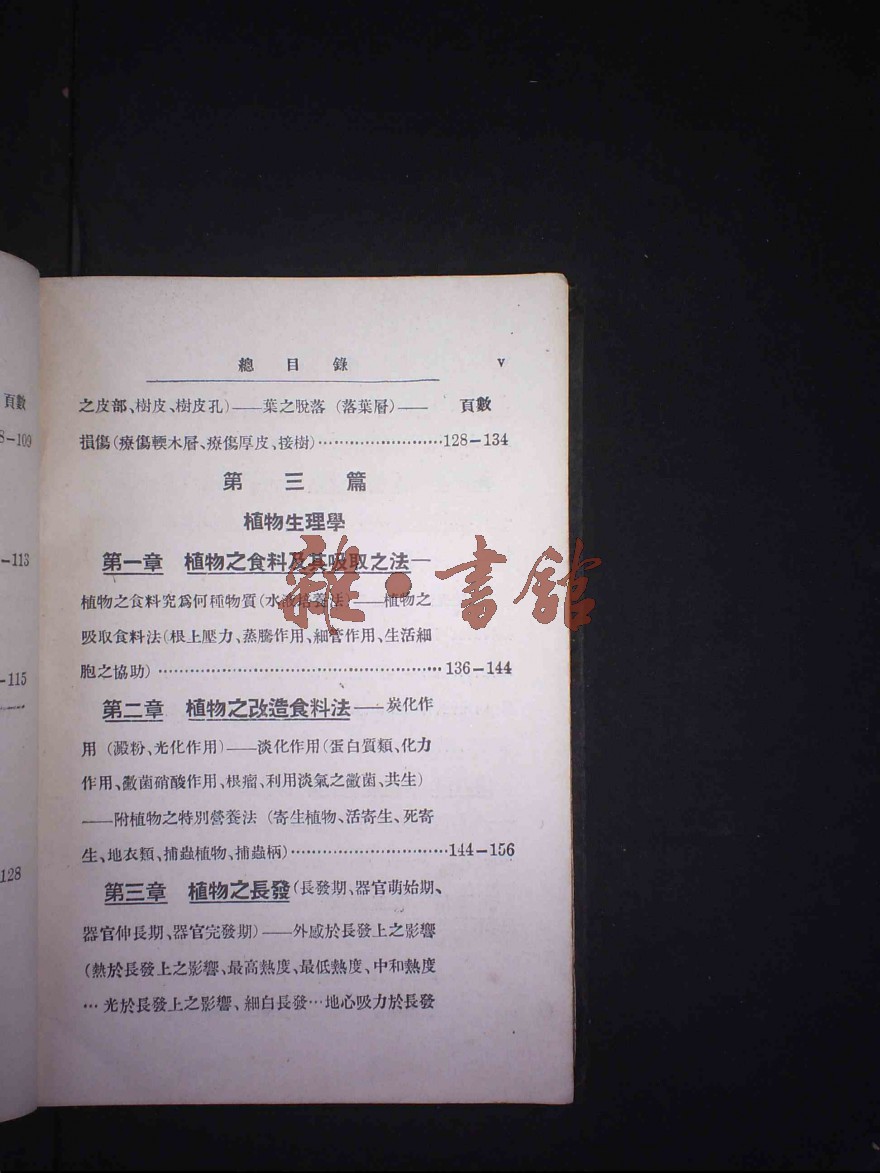 總目錄 v
之皮部、樹皮、樹皮孔)——葉之脫落 (落葉層)—— 頁數
損傷(療傷輭木層、療傷厚皮、接樹)························128–134
第三篇
植物生理學
第一章 植物之食料及其吸取之法—
植物之食料究爲何種物質(水液培養法)——植物之
吸取食料法(根上壓力、蒸騰作用、細管作用、生活細
胞之協助)························136–144
第二章 植物之改造食料法——炭化作
用 (澱粉、光化作用)——淡化作用(蛋白質類、化力
作用、黴菌硝酸作用、根瘤、利用淡氣之黴菌、共生)
——附植物之特別營養法 (寄生植物、活寄生、死寄
生、地衣類、捕蟲植物、捕蟲柄)························144–156
第三章 植物之長發(長發期、器官萌始期、
器官伸長期、器官完發期)——外感於長發上之影響
(熱於長發上之影響、最高熱度、最低熱度、中和熱度
…光於長發上之影響、細白長發…地心吸力於長發
頁數
8–109
–113
–115
128
雜·書館